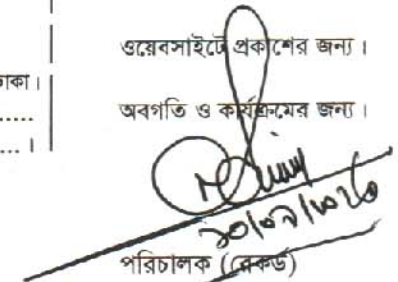 ওয়েবসাইটে প্রকাশের জন্য।
াকা।
অবগতি ও কার্যক্রমের জন্য।
.....
...।
পরিচালক (রেকর্ড)